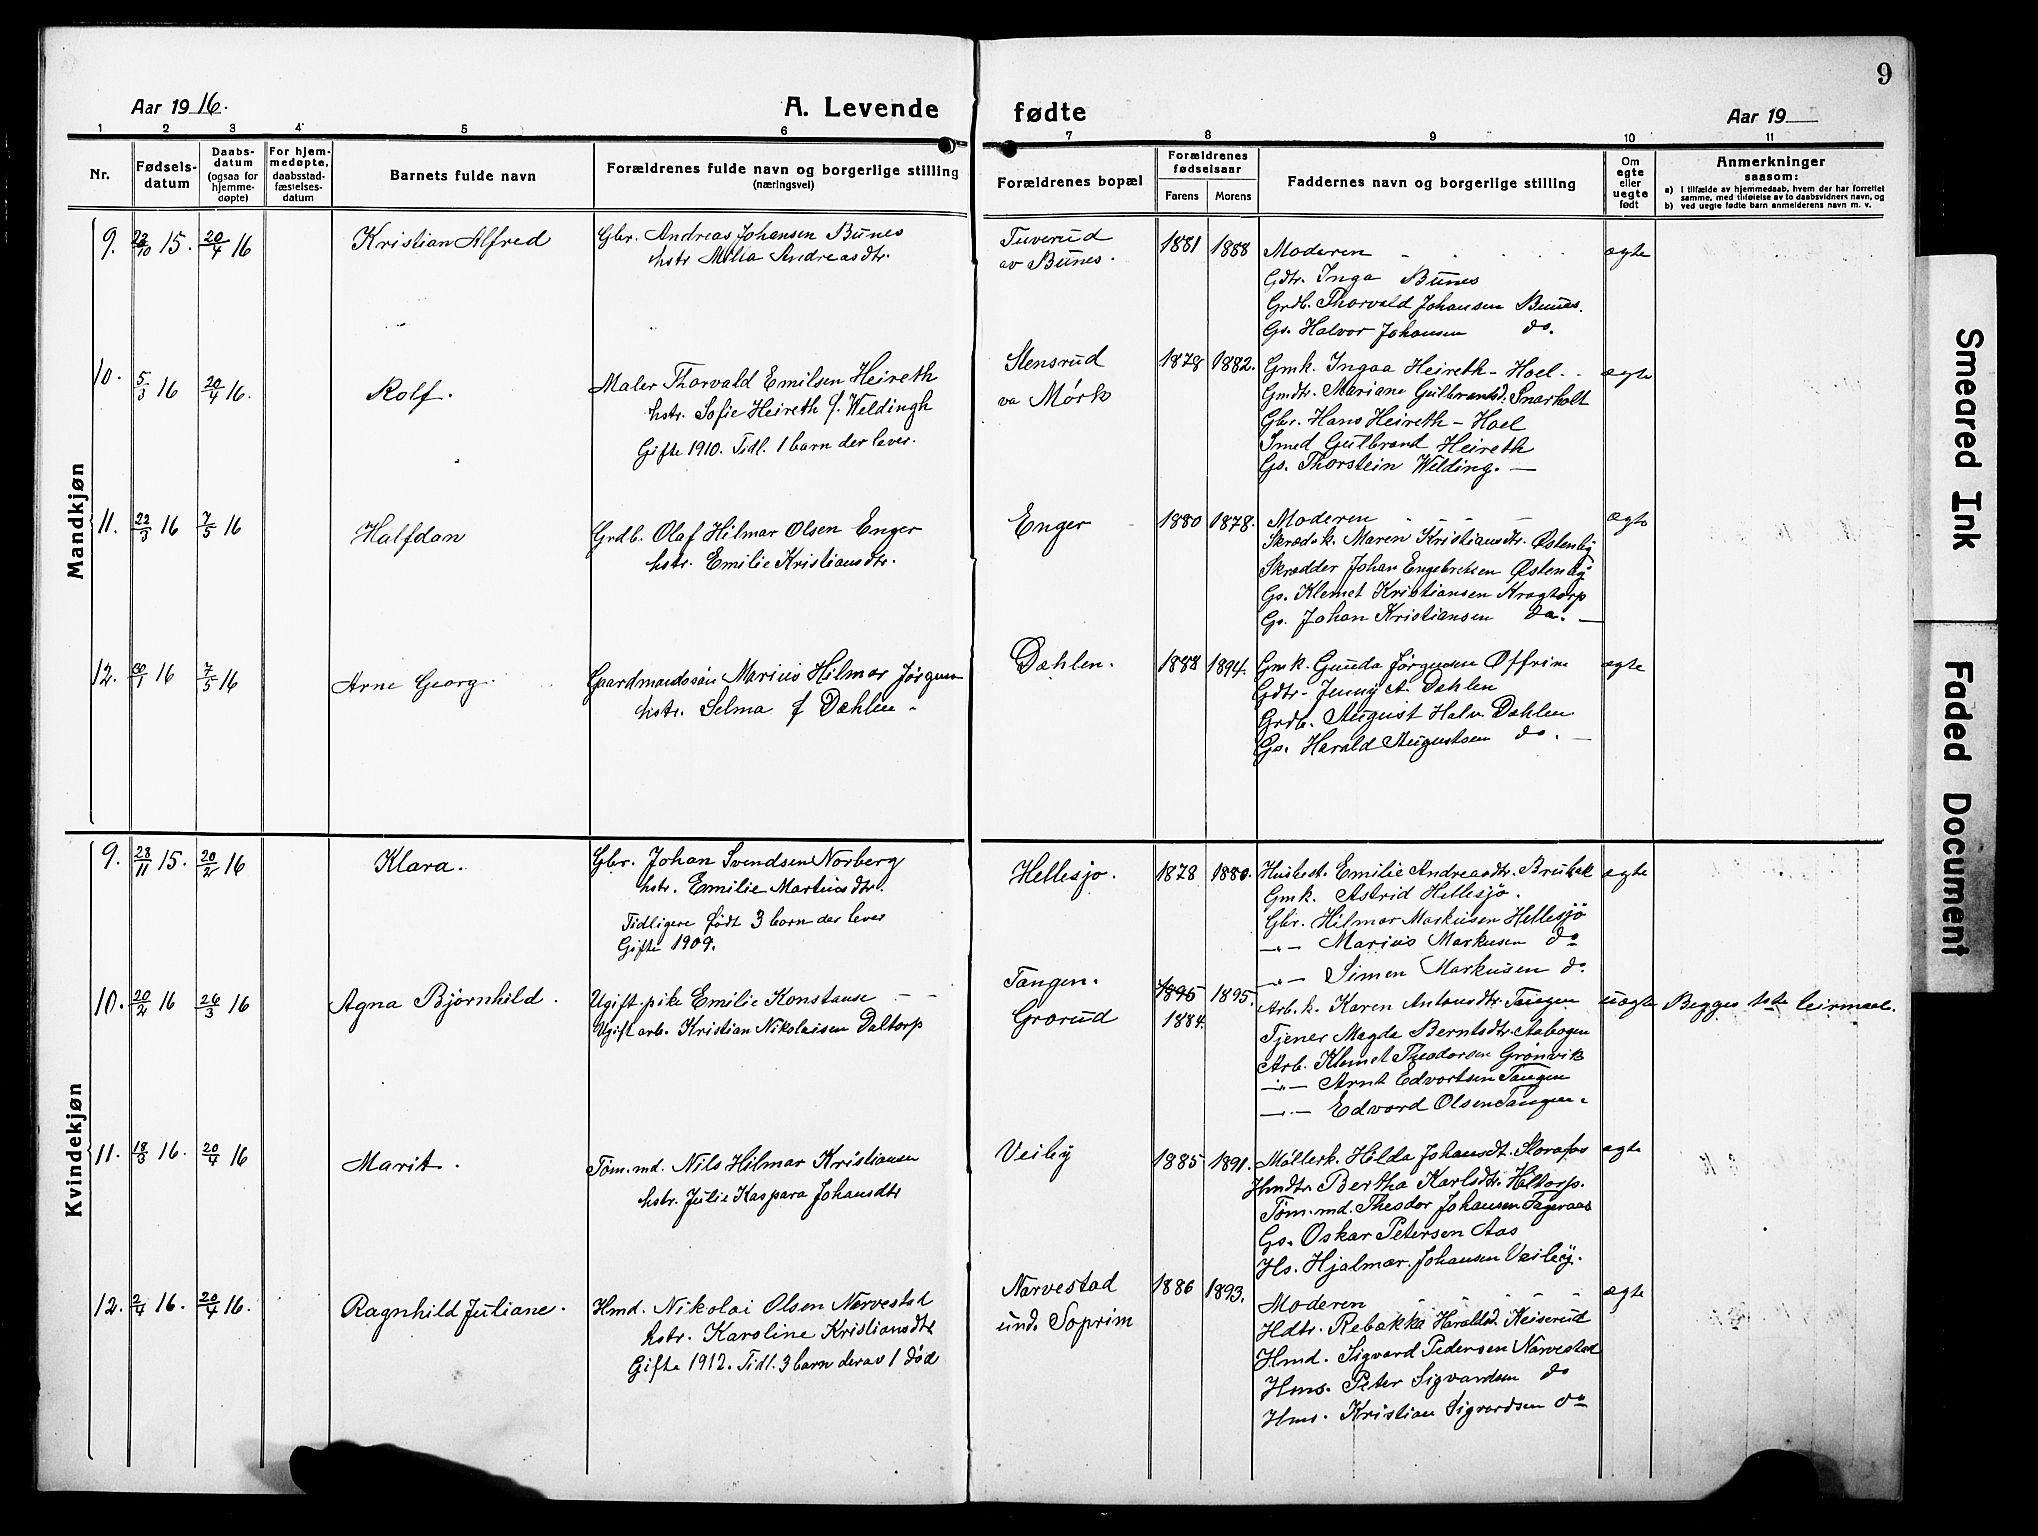 9
Aar 1916.
A. Levende fødte
Aar 19
1 2 3 4 5 6 7 8 9 10 11
Nr.
Fødsels-
datum
Daabs-
datum
(ogsaa for
hjemme-
døpte)
For hjem-
medøpte,
daabsstad-
fæstelses-
datum
Barnets fulde navn
Forældrenes fulde navn og borgerlige stilling
(næringsvei)
Forældrenes bopæl
Forældrenes
fødselsaar
Farens Morens
Faddernes navn og borgerlige stilling
Om
egte
eller
uegte
født
Anmerkninger
saasom:
a) I tilfælde av hjemmedaab, hvem der har forrettet
samme, med tilføielse av to daabsvidners navn, og
b) ved uegte fødte barn anmelderens navn m. v.
Mandkjøn
9. 15. 20/4 16
Kristian Alfred
Gbr. Andreas Johansen Bunes
hstr. Milla Andreasdtr.
Tuverud
av Bunes.
1881 1888
Moderen
Gdtr. Inga Bunes
Grdb. Thorvald Johansen Bunes.
Gs. Halvor Johansen do.
ægte
10. 5/3 16 20/4 16.
Rolf.
Maler Thorvald Emilsen Heireth
hstr. Sofie Heireth f. Weldingh
Gifte 1910. Tidl. 1 barn der lever.
Stensrud
va Mørk
1878 1882.
Gmk. Ingaa Heireth - Hoel.
Gmdtr. Mariane Gulbrandsd. Snarholt
Gbr. Hans Heireth - Hoel
Smed Gulbrand Heireth
Gs. Thorstein Welding. —
ægte
11. 22/3 16 7/5 16
Halfdan
Grdb. Olaf Hilmar Olsen Enger
hstr. Emilie Kristiansdtr.
Enger
1880 1878.
Moderen
Skrædk. Maren Kristiansdtr. Østenby
Skrædder Johan Engebretsen Østenby
Gs. Klemet Kristiansen Kragtorp
Gs. Johan Kristiansen do. —
ægte
12. 16 7/5 16
Arne Georg.
Gaardmandssøn Marius Hilmar Jørgensen
hstr. Selma f Dæhlen.
Dæhlen.
1888 1894.
Gmk. Gunda Jørgensen Offrim
Gdtr. Jenny A. Dæhlen
Grdb. August Halv. Dæhlen
Gs. Harald Augustsen do. —
ægte
Kvindekjøn
9. 28/11 15. 20/2 16
Klara.
Gbr. Johan Svendsen Norberg
hstr. Emilie Martinsdtr.
Tidligere født 3 barn der lever
Gifte 1909.
Hellesjø.
1878 1880.
Husbest. Emilie Andreasdtr. Brubak
Gmk. Astrid Hellesjø.
Gbr. Hilmar Markusen Hellesjø
-„- Marius Markusen do
-„- Simen Markusen do.
ægte
10. 20/2 16 26/3 16
Agna Bjørnhild.
Ugift pike Emilie Konstanse
Ugift arb. Kristian Nikolaisen Daltorp
Tangen.
Grorud
1895 1895.
1884.
Arb.k. Karen Antonsdtr. Tangen
Tjener Magda Berntsdtr. Aabogen
Arb. Klemet Theodorsen Grønvik
-„- Arnt Edvartsen Tangen
-„- Edvard Olsen Tangen.
uægte
Begges 1ste leirmaal.
11. 18/3 16. 20/4 16
Marit.
Tøm.md. Nils Hilmar Kristiansen
hstr. Julie Kaspara Johansdtr
Veiby
1885 1891.
Møllerk. Hilda Johansdt. Storafos
Hmdtr. Bertha Karlsdtr. Haltorp.
Tøm.md. Theodor Johansen Fageraas
Gs. Oskar Petersen Aas
Hs. Hjalmar Johansen Veiby.
ægte
12. 2/4 16. 20/4 16.
Ragnhild Juliane.
Hmd. Nikolai Olsen Narvestad
hstr. Karoline Kristiansdtr
Gifte 1912. Tidl. 3 barn derav 1 død
Narvestad
und. Soprim
1886 1893.
Moderen
Hdtr. Rebekka Haraldsd. Keiserud
Hmd. Sigvard Pedersen Narvestad
Hms. Peter Sigvardsen do
Hms. Kristian Sigvardsen do
ægte
Smeared Ink
Faded Document